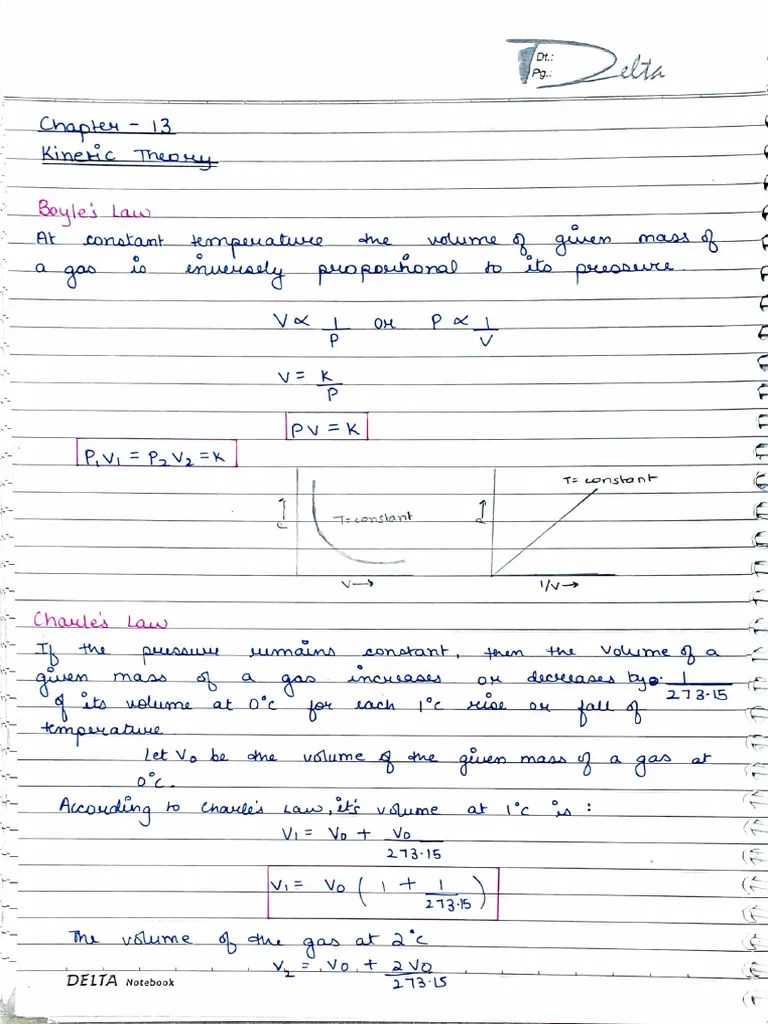 Dt.:
Pg.:
Delta
Chapter - 13
Kinetic Theory
Boyle's Law
At constant temperature the volume of given mass of
a gas is inversely proportional to its pressure.
V ∝ 1/P or P ∝ 1/V
V = K/P
PV = K
P₁V₁ = P₂V₂ = K
T= constant
T= constant
V→
1/V→
Charle's Law
If the pressure remains constant, then the volume of a
given mass of a gas increases or decreases by 1/273.15
of its volume at 0°c for each 1°c rise or fall of
temperature
Let V₀ be the volume of the given mass of a gas at
0°c.
According to Charle's Law, it's volume at 1°c is :
V₁ = V₀ + V₀/273.15
V₁ = V₀ ( 1 + 1/273.15 )
The volume of the gas at 2°c
V₂ = V₀ + 2V₀/273.15
DELTA Notebook